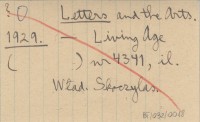 ? O Letters and the Arts.
1929. — Living Age
( ) nr 4341, il.
Wład. Skoczylas.